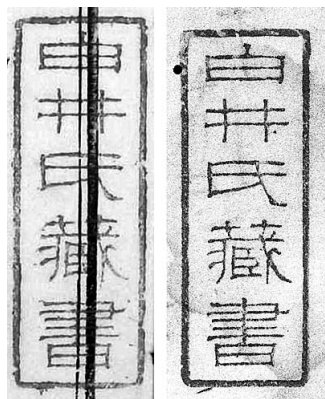 白井氏藏書
白井氏藏書